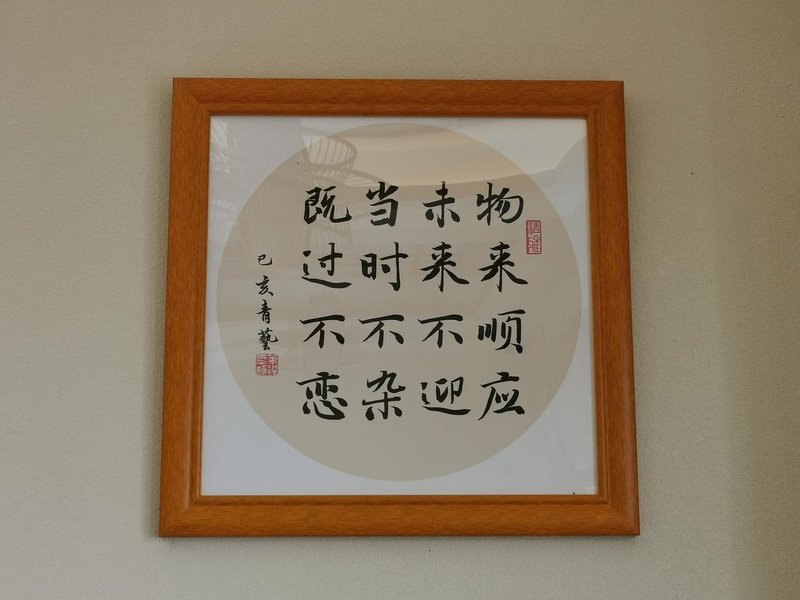 物来顺应
未来不迎
当时不杂
既过不恋
己亥青藝